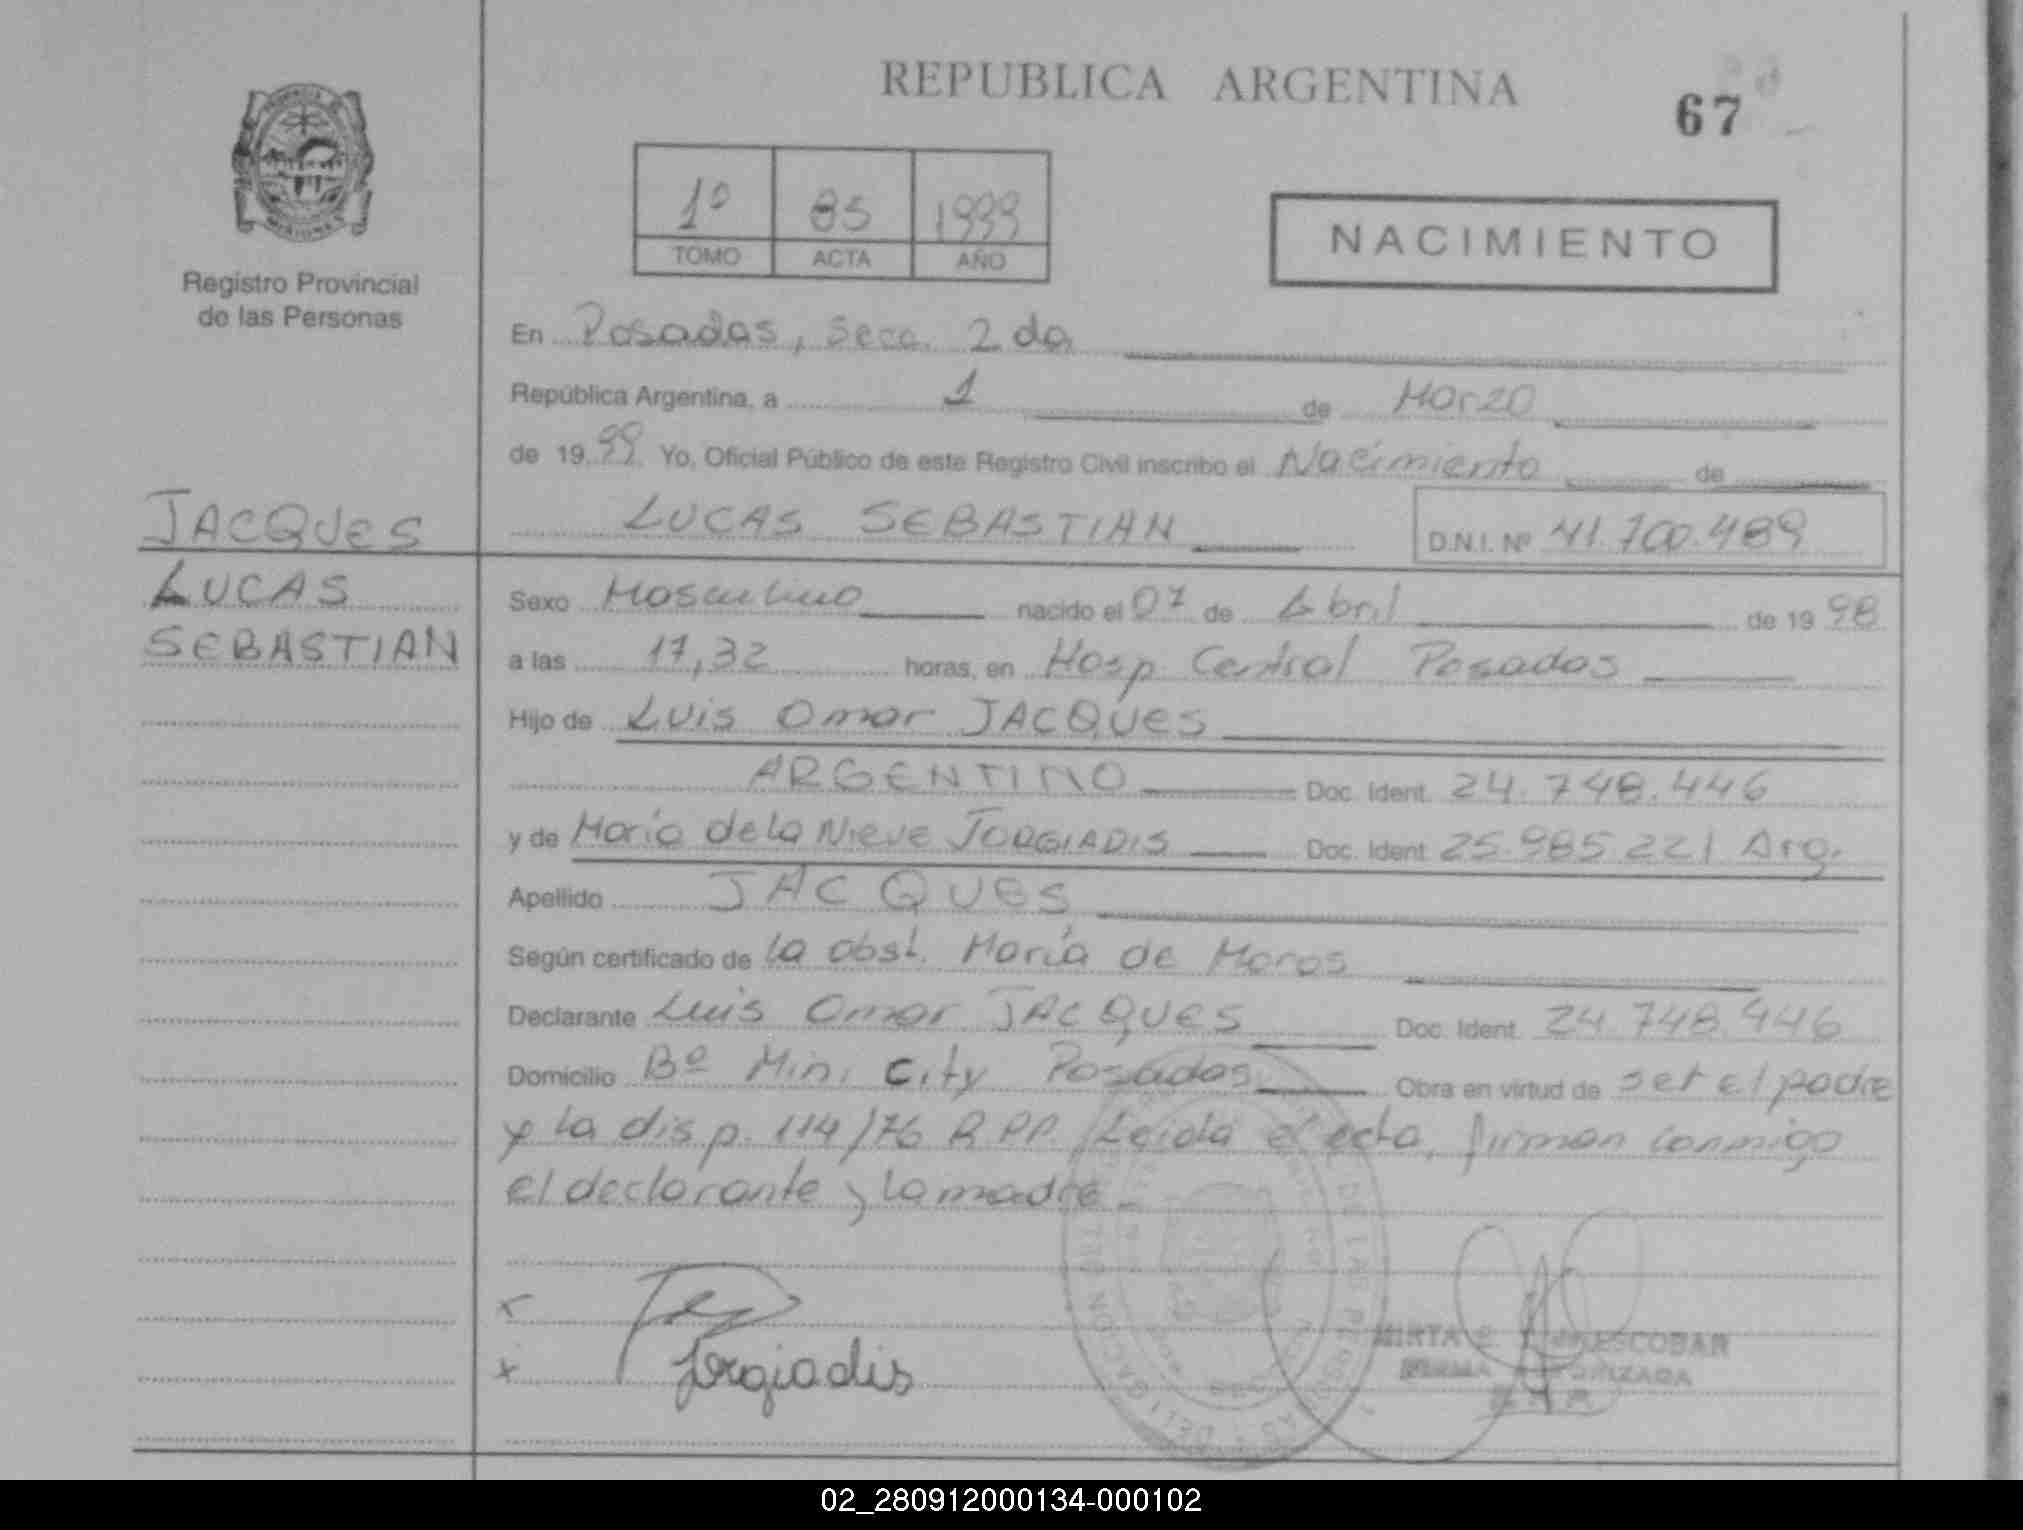 REPUBLICA ARGENTINA
67
1º 85 1999
TOMO ACTA AÑO
NACIMIENTO
Registro Provincial
de las Personas
En Posadas, Secc. 2 da
República Argentina, a 1 de Marzo
de 1999 Yo, Oficial Público de este Registro Civil inscribo el Nacimiento de
JACQUES
LUCAS SEBASTIAN D.N.I. Nº 41.700.489
LUCAS
SEBASTIAN
Sexo Masculino nacido el 07 de Abril de 1998
a las 17,32 horas, en Hosp Central Posadas
Hijo de Luis Omar JACQUES
ARGENTINO Doc. Ident. 24.748.446
y de María de la Nieve JORGIADIS Doc. Ident 25.985.221 Arg.
Apellido JACQUES
Según certificado de la obst. María de Moros
Declarante Luis Omar JACQUES Doc. Ident. 24.748.446
Domicilio Bº Mini City Posadas Obra en virtud de ser el padre
y la disp. 114/76 R.P.P. Leída el acta, firman conmigo
el declarante y la madre
x
x Jorgiadis
MIRTA ESCOBAR
FIRMA AUTORIZADA
02_280912000134-000102